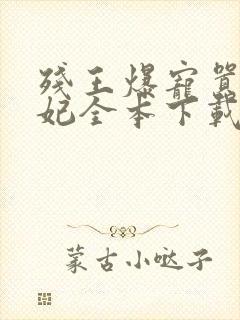 残王爆寵囂
妃全本下載
蒙古小噠子